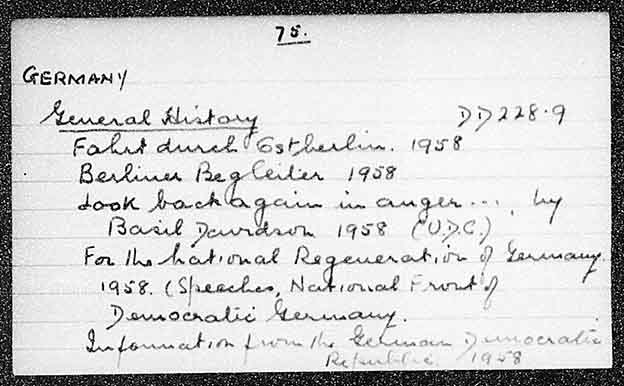 75.
GERMANY
General History DD228.9
Fahrt durch Ostberlin. 1958
Berliner Begleiter 1958
Look back again in anger..., by
Basil Davidson 1958 (U.D.C.)
For the National Regeneration of Germany.
1958. (Speeches, National Front of
Democratic Germany.
Information from the German Democratic
Republic. 1958